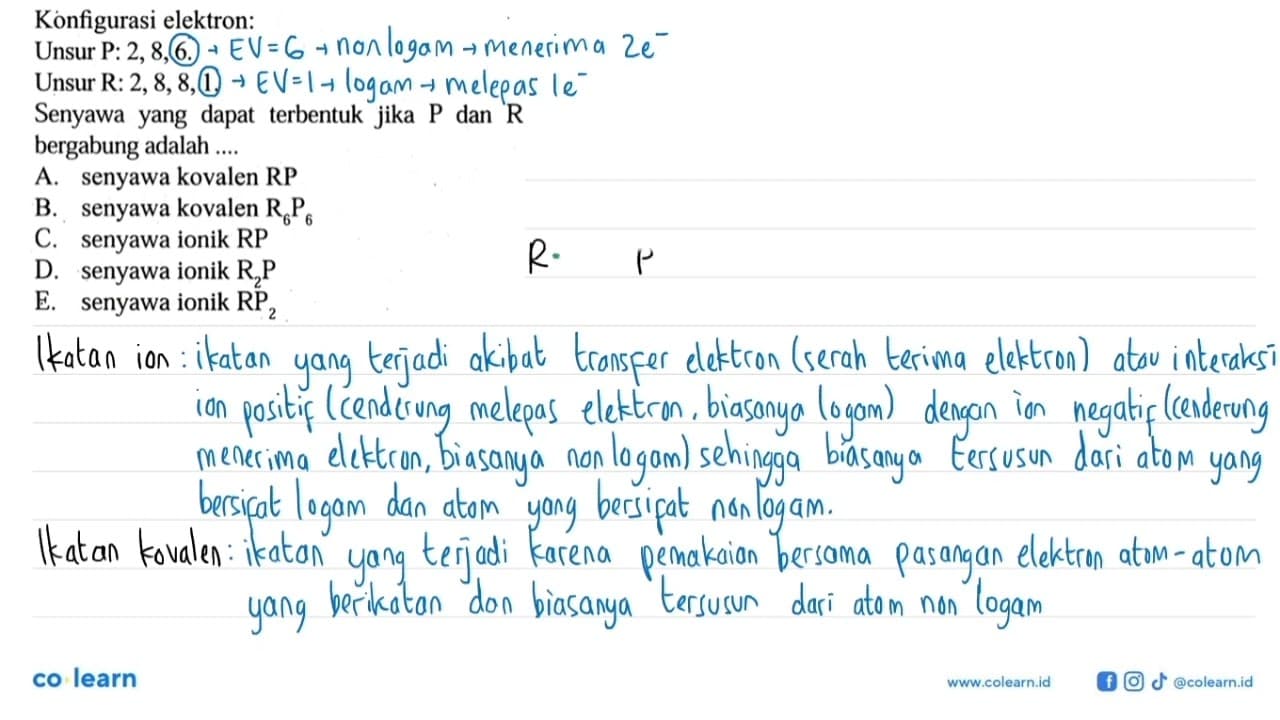 Konfigurasi elektron:
Unsur P: 2, 8, 6. → EV = 6 → nonlogam → menerima 2e⁻
Unsur R: 2, 8, 8, 1. → EV = 1 → logam → melepas 1e⁻
Senyawa yang dapat terbentuk jika P dan R
bergabung adalah ....
A. senyawa kovalen RP
B. senyawa kovalen R₆P₆
C. senyawa ionik RP
D. senyawa ionik R₂P
E. senyawa ionik RP₂
R• P
Ikatan ion : ikatan yang terjadi akibat transfer elektron (serah terima elektron) atau interaksi
ion positif (cenderung melepas elektron, biasanya logam) dengan ion negatif (cenderung
menerima elektron, biasanya non logam) sehingga biasanya tersusun dari atom yang
bersifat logam dan atom yang bersifat nonlogam.
Ikatan kovalen : ikatan yang terjadi karena pemakaian bersama pasangan elektron atom-atom
yang berikatan dan biasanya tersusun dari atom non logam
co learn
www.colearn.id
@colearn.id